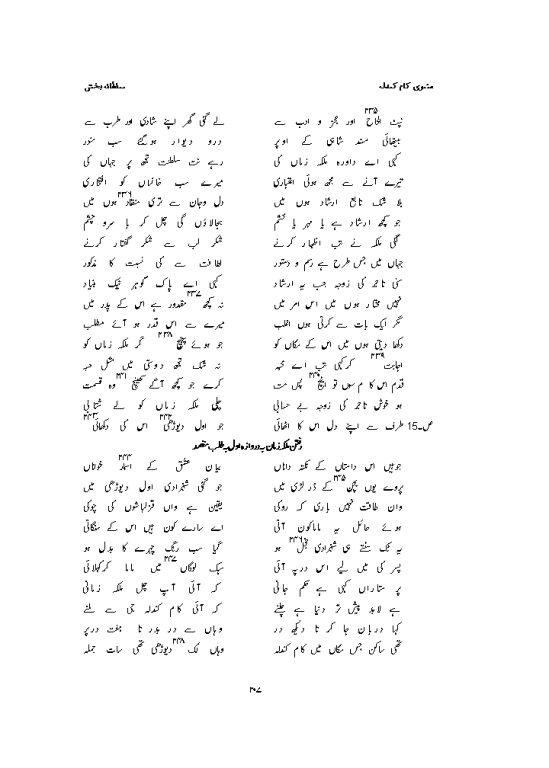 مثنوی کام کندلہ سلطان بخشی
نپٹ افتاح۲۳۵ اور عجز و ادب سے لے گئی گھر اپنے شادی اور طرب سے
بیٹھائی مسند شاہی کے اوپر درو دیوار ہوگئے سب منور
کہی اے داورہ ملکہ زماں کی رہے نت سلطنت تجھ پر جہاں کی
تیرے آنے سے مجھ ہوئی افتہاری میرے سب خانماں کو افتخاری
بلا شک تابع ارشاد ہوں میں دل وجان سے تری منقاد۲۳۶ ہوں میں
جو کچھ ارشاد ہے یا مہر یا خشم بجالاؤں گی چل کر با سرو چشم
لگی ملکہ نے تب اظہار کرنے شکر لب سے شکر گفتار کرنے
جہاں میں جس طرح ہے رسم و دستور لطافت سے کی نسبت کا مذکور
سنی تاجر کی زوجہ جب یہ ارشاد کہی اے پاک گوہر نیک بنیاد
نہیں مختار ہوں میں اس امر میں نہ کچھ۲۳۷ مقدور ہے اس کے پدر میں
مگر ایک بات سے کرتی ہوں اغلب میرے سے اس قدر ہو آئے مطلب
دکھا دیتی ہوں میں اس کے مکاں کو جو ہوئے پہنچ۲۳۸ گر ملکہ زماں کو
اجابت۲۳۹ کر کہی تب اے نہ شک تجھ دوستی میں مثل
قدم اس کام سوں تو۲۴۰ پس مت کرے جو کچھ آگے کھینچ۲۴۱ وہ قسمت
ہو خوش تاجر کی زوجہ بے حسابی چلی ملکہ زماں کو لے شتابی
ص۔15 طرف سے اپنے دل اس کا اٹھائی جو اول دیوڑھی۲۴۲ اس کی دکھائی۲۴۳
رفتن ملکہ زمان بہ دروازہ اول بہ طلب مقصد
جوہیں اس داستاں کے نکتہ داناں بیان عشق کے اسرار۲۴۴ خواناں
پروے یوں بچن۲۴۵ کے در لڑی میں جو گئی شہزادی اول دیوڑھی میں
واں طاقت نہیں یاری کہ روکی یقین ہے واں قزلباشوں کی چوکی
ہوئے حائل یہ ماماکون آتی اے سارے کون ہیں اس کے سنگاتی
یہ تک سنتے ہی شہزادی خجل۲۴۶ ہو گیا سب رنگ چہرے کا بدل ہو
پسر کی میں لیے اس در پہ آئی سبک لوگاں۲۴۷ میں ماما کر کہلائی
پر ستاراں کہی ہے حکم جانی کہ آئی آپ چل ملکہ زمانی
ہے لابد پیش تر دنیا ہے چلنے کہ آئی کام کندلہ جی سے ملنے
کہا دربان جا کر تا دیکھ در وہاں سے در بدر تا ہفت در پر
تھی ساکن جس مکاں میں کام کندلہ وہاں لک۲۴۸ دیوڑھی تھی سات جملہ
۲۰۷